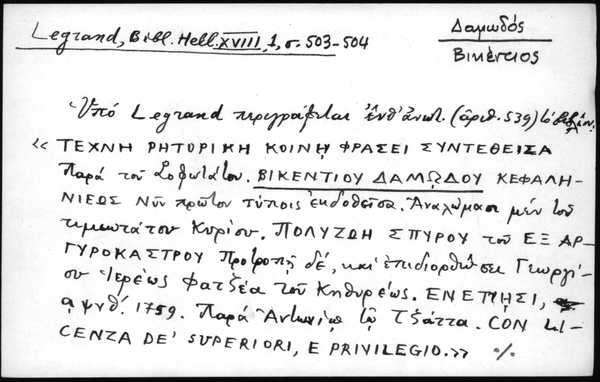 Legrand, Bibl. Hell. XVIII, 1, σ. 503-504
Δαμωδός
Βικέντιος
Ὑπό Legrand περιγράφεται ἔνθ' ἀνωτ. (ἀριθ. 539) τό βιβλίον:
« ΤΕΧΝΗ ΡΗΤΟΡΙΚΗ ΚΟΙΝῌ ΦΡΑΣΕΙ ΣΥΝΤΕΘΕΙΣΑ
Παρά τοῦ Σοφωτάτου. ΒΙΚΕΝΤΙΟΥ ΔΑΜΩΔΟΥ ΚΕΦΑΛΗ-
ΝΙΕΩΣ Νῦν πρῶτον τύποις ἐκδοθεῖσα. Ἀναλώμασι μέν τοῦ
τιμιωτάτου Κυρίου. ΠΟΛΥΖΩΗ ΣΠΥΡΟΥ τοῦ ΕΞ ΑΡ-
ΓΥΡΟΚΑΣΤΡΟΥ Προτροπῇ δέ, καί ἐπιδιορθώσει Γεωργί-
ου Ἱερέως Φατζέα τοῦ Κηθυρέως. ΕΝΕΤΙΗΣΙ,
αψνθ΄. 1759. Παρά Ἀντωνίῳ τῷ Τζάττα. CON LI-
CENZA DE' SUPERIORI, E PRIVILEGIO.» ·/.